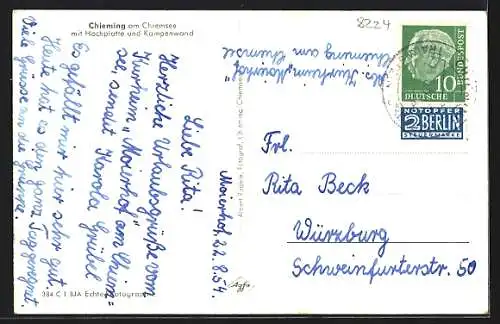 Chieming am Chiemsee
mit Hochplatte und Kampenwand
Maierhof, 22.8.54.
Liebe Rita!
Herzliche Urlaubsgrüße vom
Kurheim "Maierhof" am Chiem-
see, sendet Karola Grübel
Es gefällt mir hier sehr gut.
Heute hat es den ganz. Tag geregnet.
Viele Grüsse an die
384 C 1 BJA Echte Fotografie
Chieming
Agfa
8224
Abs. Kurheim "Maierhof"
Chieming am Chiemsee
10
DEUTSCHE
BUNDESPOST
NOTOPFER
2 BERLIN
STEUERMARKE
Frl.
Rita Beck
Würzburg
Schweinfurterstr. 50